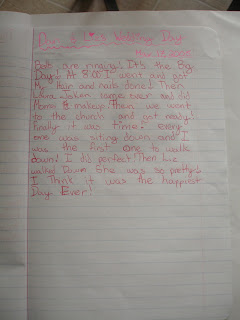 and Liz's Wedding Day
March 15, 2000
Bells are ringing! It's the Big
Day! At 8:00 I went and got
My Hair and nails done! Then
came and did
Moms makeup. Then we went
to the church and got ready!
finally it was time. every
one was siting down and I
was the first one to walk
down! I did perfect! Then Liz
walked Down She was so pretty!
I Think it was the happiest
Day Ever!